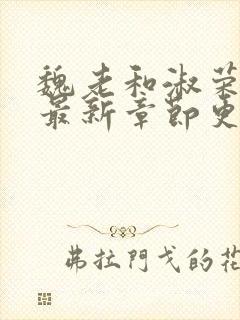 魏老和淑荣
最新章节更
弗拉門戈的花